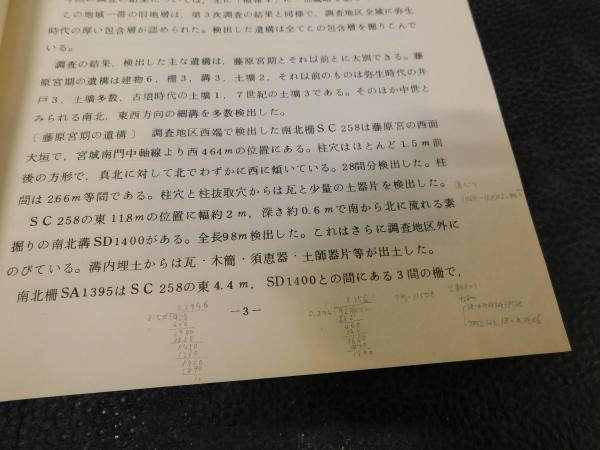 この地域一帯の旧地層は、第3次調査の結果と同様で、調査地区全域に弥生
時代の厚い包含層が認められた。検出した遺構は全てこの包含層を掘りこんで
いる。
調査の結果、検出した主な遺構は、藤原宮期とそれ以前とに大別できる。藤
原宮期の遺構は建物6、柵3、溝3、土壙2、それ以前のものは弥生時代の井
戸3、土壙多数、古墳時代の土壙1、7世紀の土壙3である。そのほか中世と
みられる南北、東西方向の細溝を多数検出した。
〔藤原宮期の遺構〕 調査地区西端で検出した南北柵SC258は藤原宮の西面
大垣で、宮城南門中軸線より西464mの位置にある。柱穴はほとんど1.5m前
後の方形で、真北に対して北でわずかに西に傾いている。28間分検出した。柱
間は2.66m等間である。柱穴と柱抜取穴からは瓦と少量の土器片を検出した。
SC258の東11.8mの位置に幅約2m、深さ約0.6mで南から北に流れる素
掘りの南北溝SD1400がある。全長98m検出した。これはさらに調査地区外に
のびている。溝内埋土からは瓦・木簡・須恵器・土師器片等が出土した。
南北柵SA1395はSC258の東4.4m、SD1400との間にある3間の柵で、
—3—